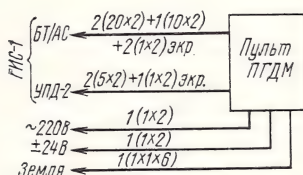 ГИС-1
БТ/АС
2(20×2)+1(10×2)
+2(1×2)экр.
УПД-2
2(5×2)+1(1×2)экр.
Пульт
ПГДМ
~220В
1(1×2)
±24В
1(1×2)
Земля
1(1×1×6)